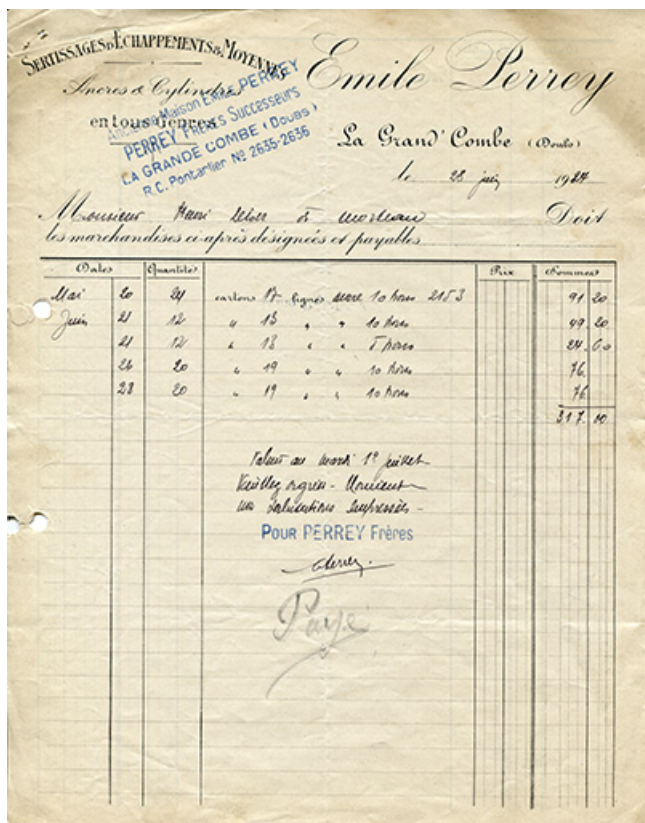 SERTISSAGES D'ÉCHAPPEMENTS & MOYENNES
Ancres & Cylindres
en tous Genres
Ancienne Maison Emile PERREY
PERREY FRÈRES Successeurs
LA GRANDE COMBE (Doubs)
R.C. Pontarlier Nº 2635-2636
Emile Perrey
La Grand'Combe (Doubs)
le 28 juin 1924
Monsieur Henri à Morteau Doit
les marchandises ci-après désignées et payables
Dates Quantités Prix Sommes
Mai 20 24 cartons 17 lignes 10 91 20
Juin 21 12 " 13 " " 10 49 20
21 12 " 13 " " 24 60
26 20 " 19 " " 10 76
28 20 " 19 " " 10 76
317 00
au mardi 1er juillet
Veuillez agréer Monsieur
nos Salutations empressées -
POUR PERREY Frères
Perrey
Payé